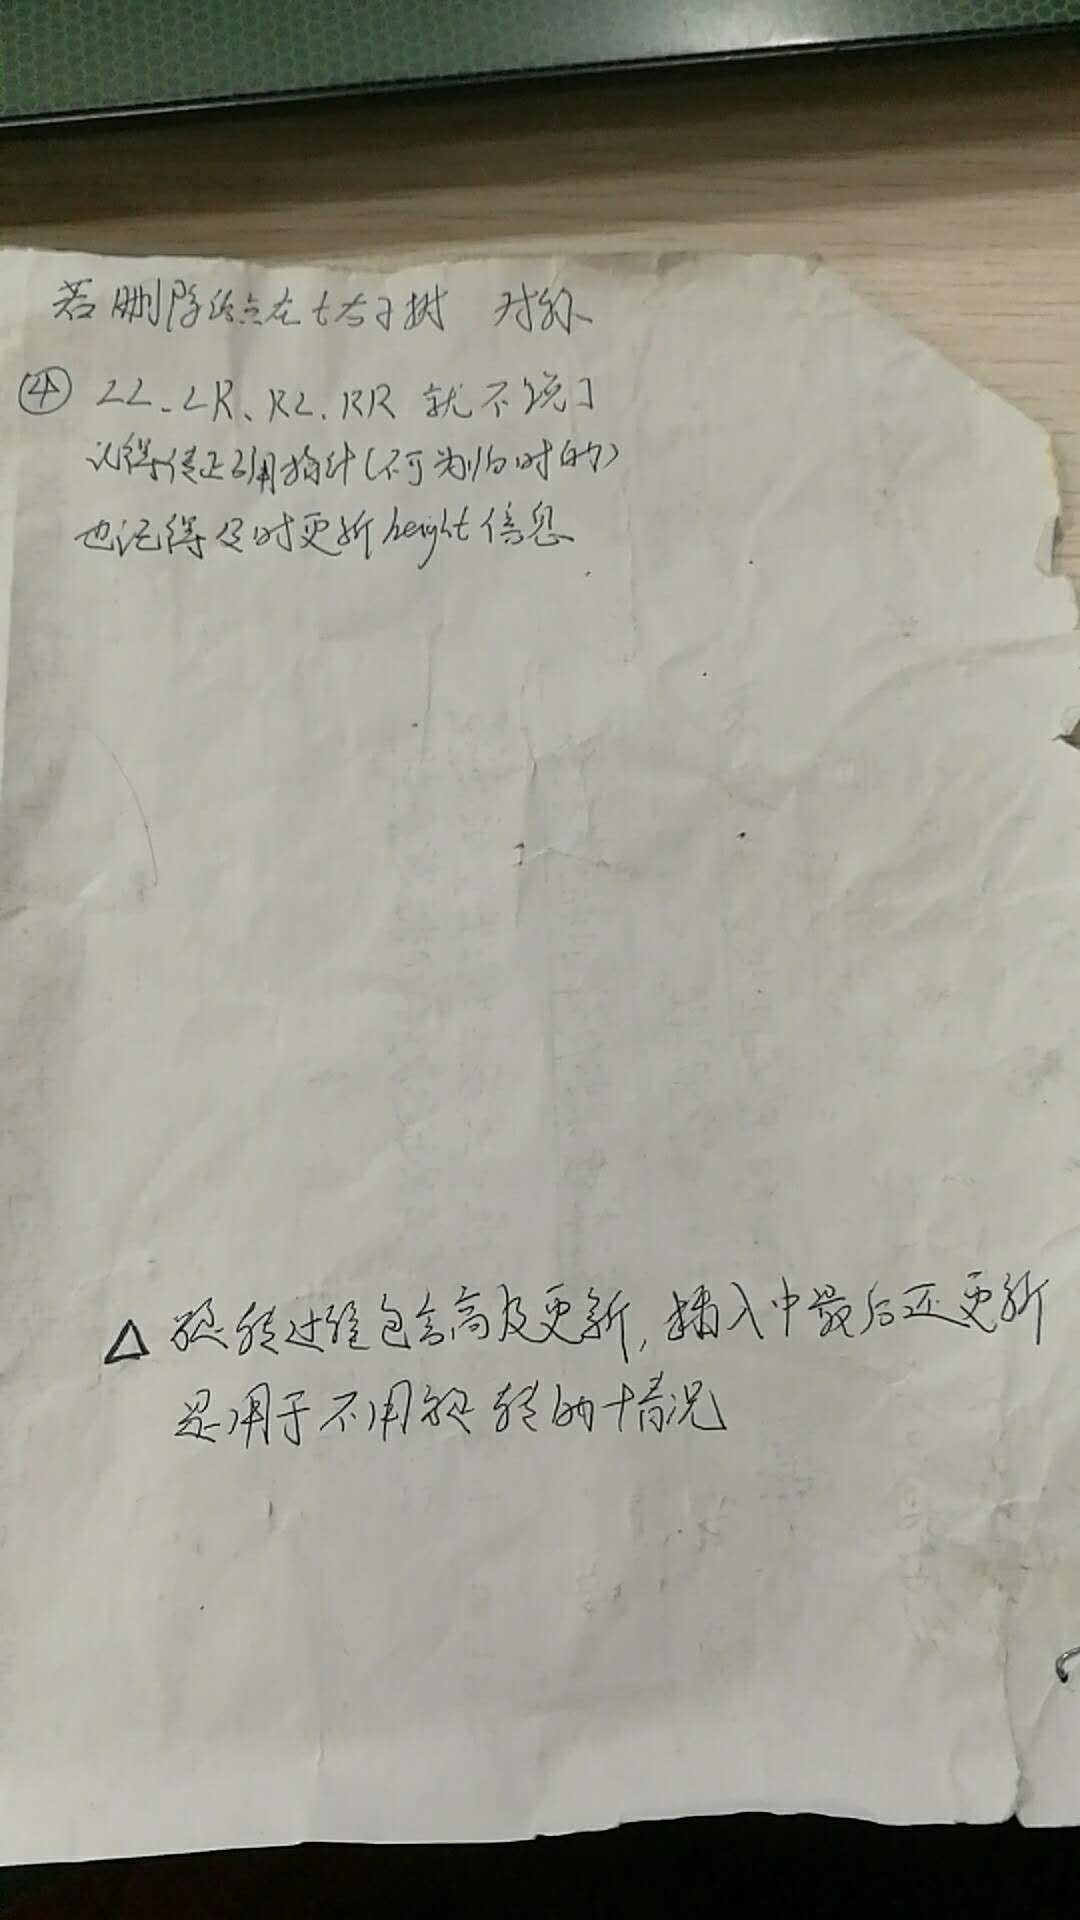 若删除结点在t右子树 对称
④ LL、LR、RL、RR 就不说了
记得传正引用指针(不可为临时的)
也记得及时更新height信息
△ 旋转过程包含高度更新,插入中最后还更新
是用于不用旋转的情况